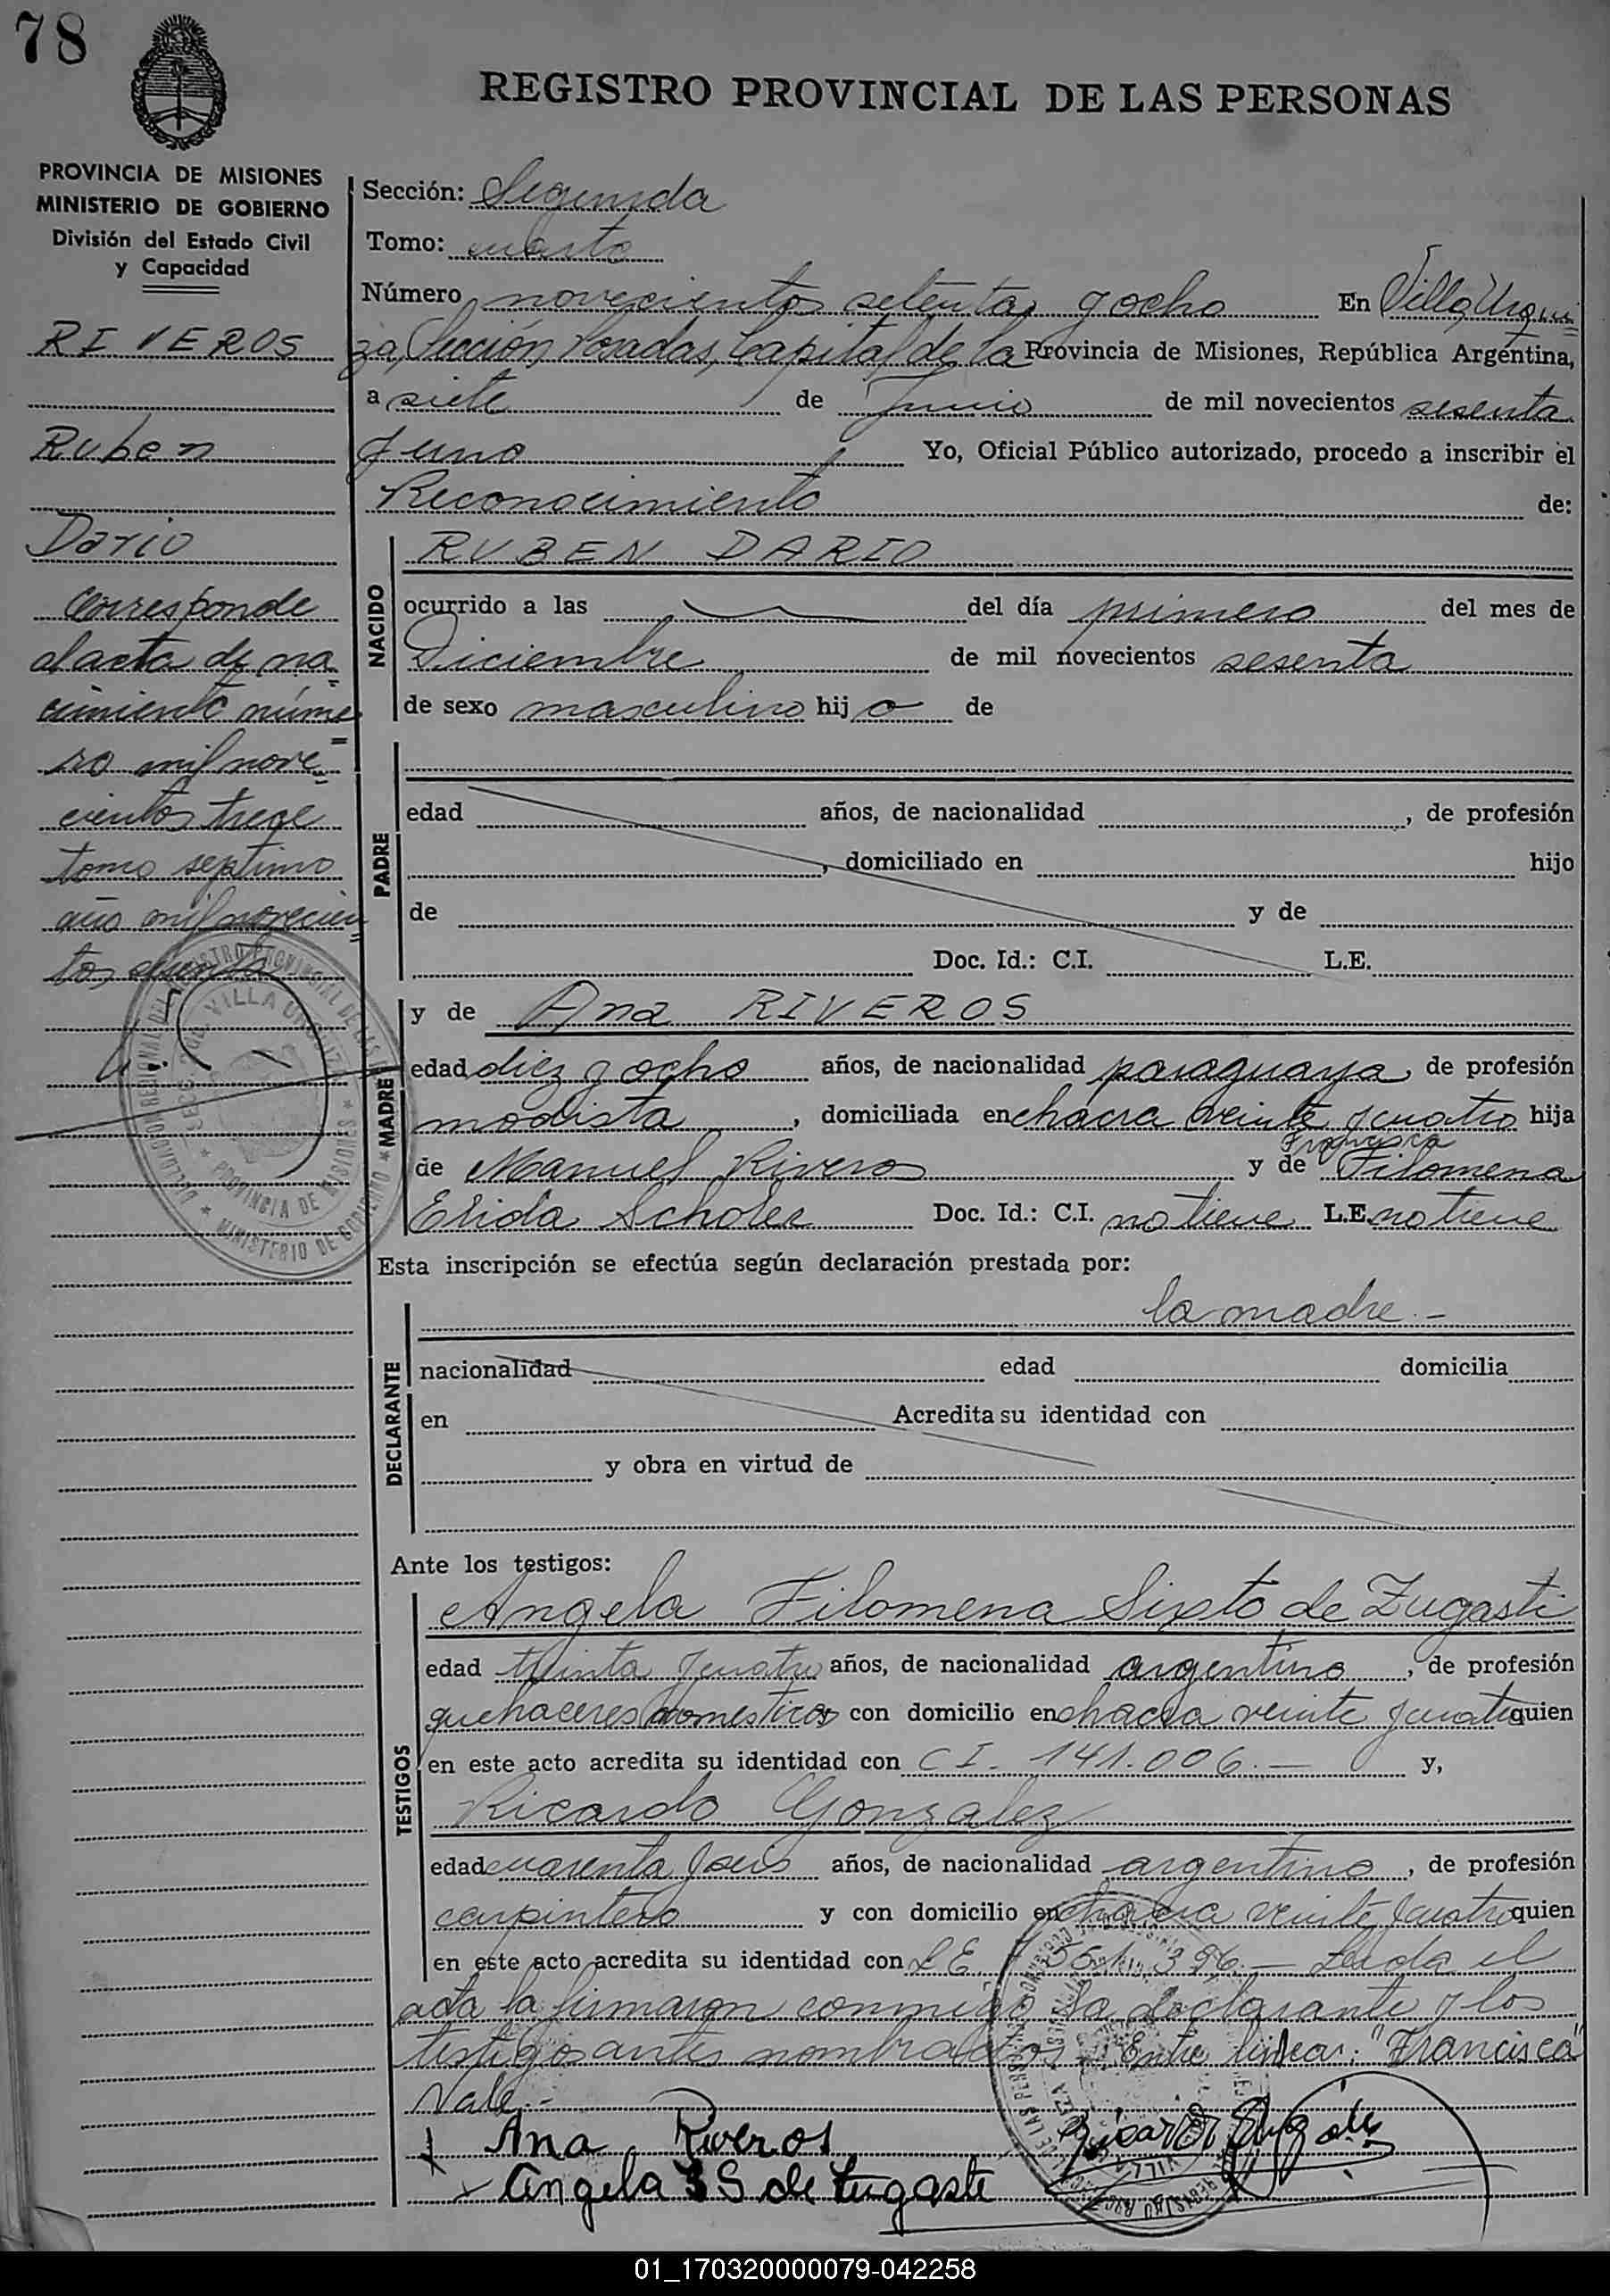 78
REGISTRO PROVINCIAL DE LAS PERSONAS
PROVINCIA DE MISIONES
MINISTERIO DE GOBIERNO
División del Estado Civil
y Capacidad
RIVEROS
Ruben
Dario
Corresponde
al acta de na
cimiento núme
ro mil nove
cientos trece
tomo septimo
año mil novecien
tos sesenta
Sección: Segunda
Tomo: cuarto
Número novecientos setenta y ocho En Villa Urqui
za, Sección Posadas, Capital de la Provincia de Misiones, República Argentina,
a siete de Junio de mil novecientos sesenta
y uno Yo, Oficial Público autorizado, procedo a inscribir el
Reconocimiento de:
NACIDO
RUBEN DARIO
ocurrido a las del día primero del mes de
Diciembre de mil novecientos sesenta
de sexo masculino hijo de
PADRE
edad años, de nacionalidad , de profesión
, domiciliado en hijo
de y de
Doc. Id.: C.I. L.E.
MADRE
y de Ana RIVEROS
edad diez y ocho años, de nacionalidad paraguaya, de profesión
modista, domiciliada en chacra veinte y cuatro hija
Francisca
de Manuel Riveros y de Filomena
Elida Doc. Id.: C.I. no tiene L.E. no tiene
Esta inscripción se efectúa según declaración prestada por:
la madre.-
DECLARANTE
nacionalidad edad domicilia
en Acredita su identidad con
y obra en virtud de
Ante los testigos:
TESTIGOS
Angela Filomena Sixto de Zugasti
edad treinta y cuatro años, de nacionalidad argentina, de profesión
quehaceres domesticos y con domicilio en chacra veinte y cuatro quien
en este acto acredita su identidad con C I. 141.006.— y,
Ricardo Gonzalez
edad cuarenta y seis años, de nacionalidad argentino, de profesión
carpintero y con domicilio en chacra veinte y cuatro quien
en este acto acredita su identidad con L E Leida el
acta la firmaron conmigo la declarante y los
testigos antes nombrados.- Entre lineas: "Francisca"
Vale.-
Ana Riveros
Angela S de Zugasti
01_170320000079-042258